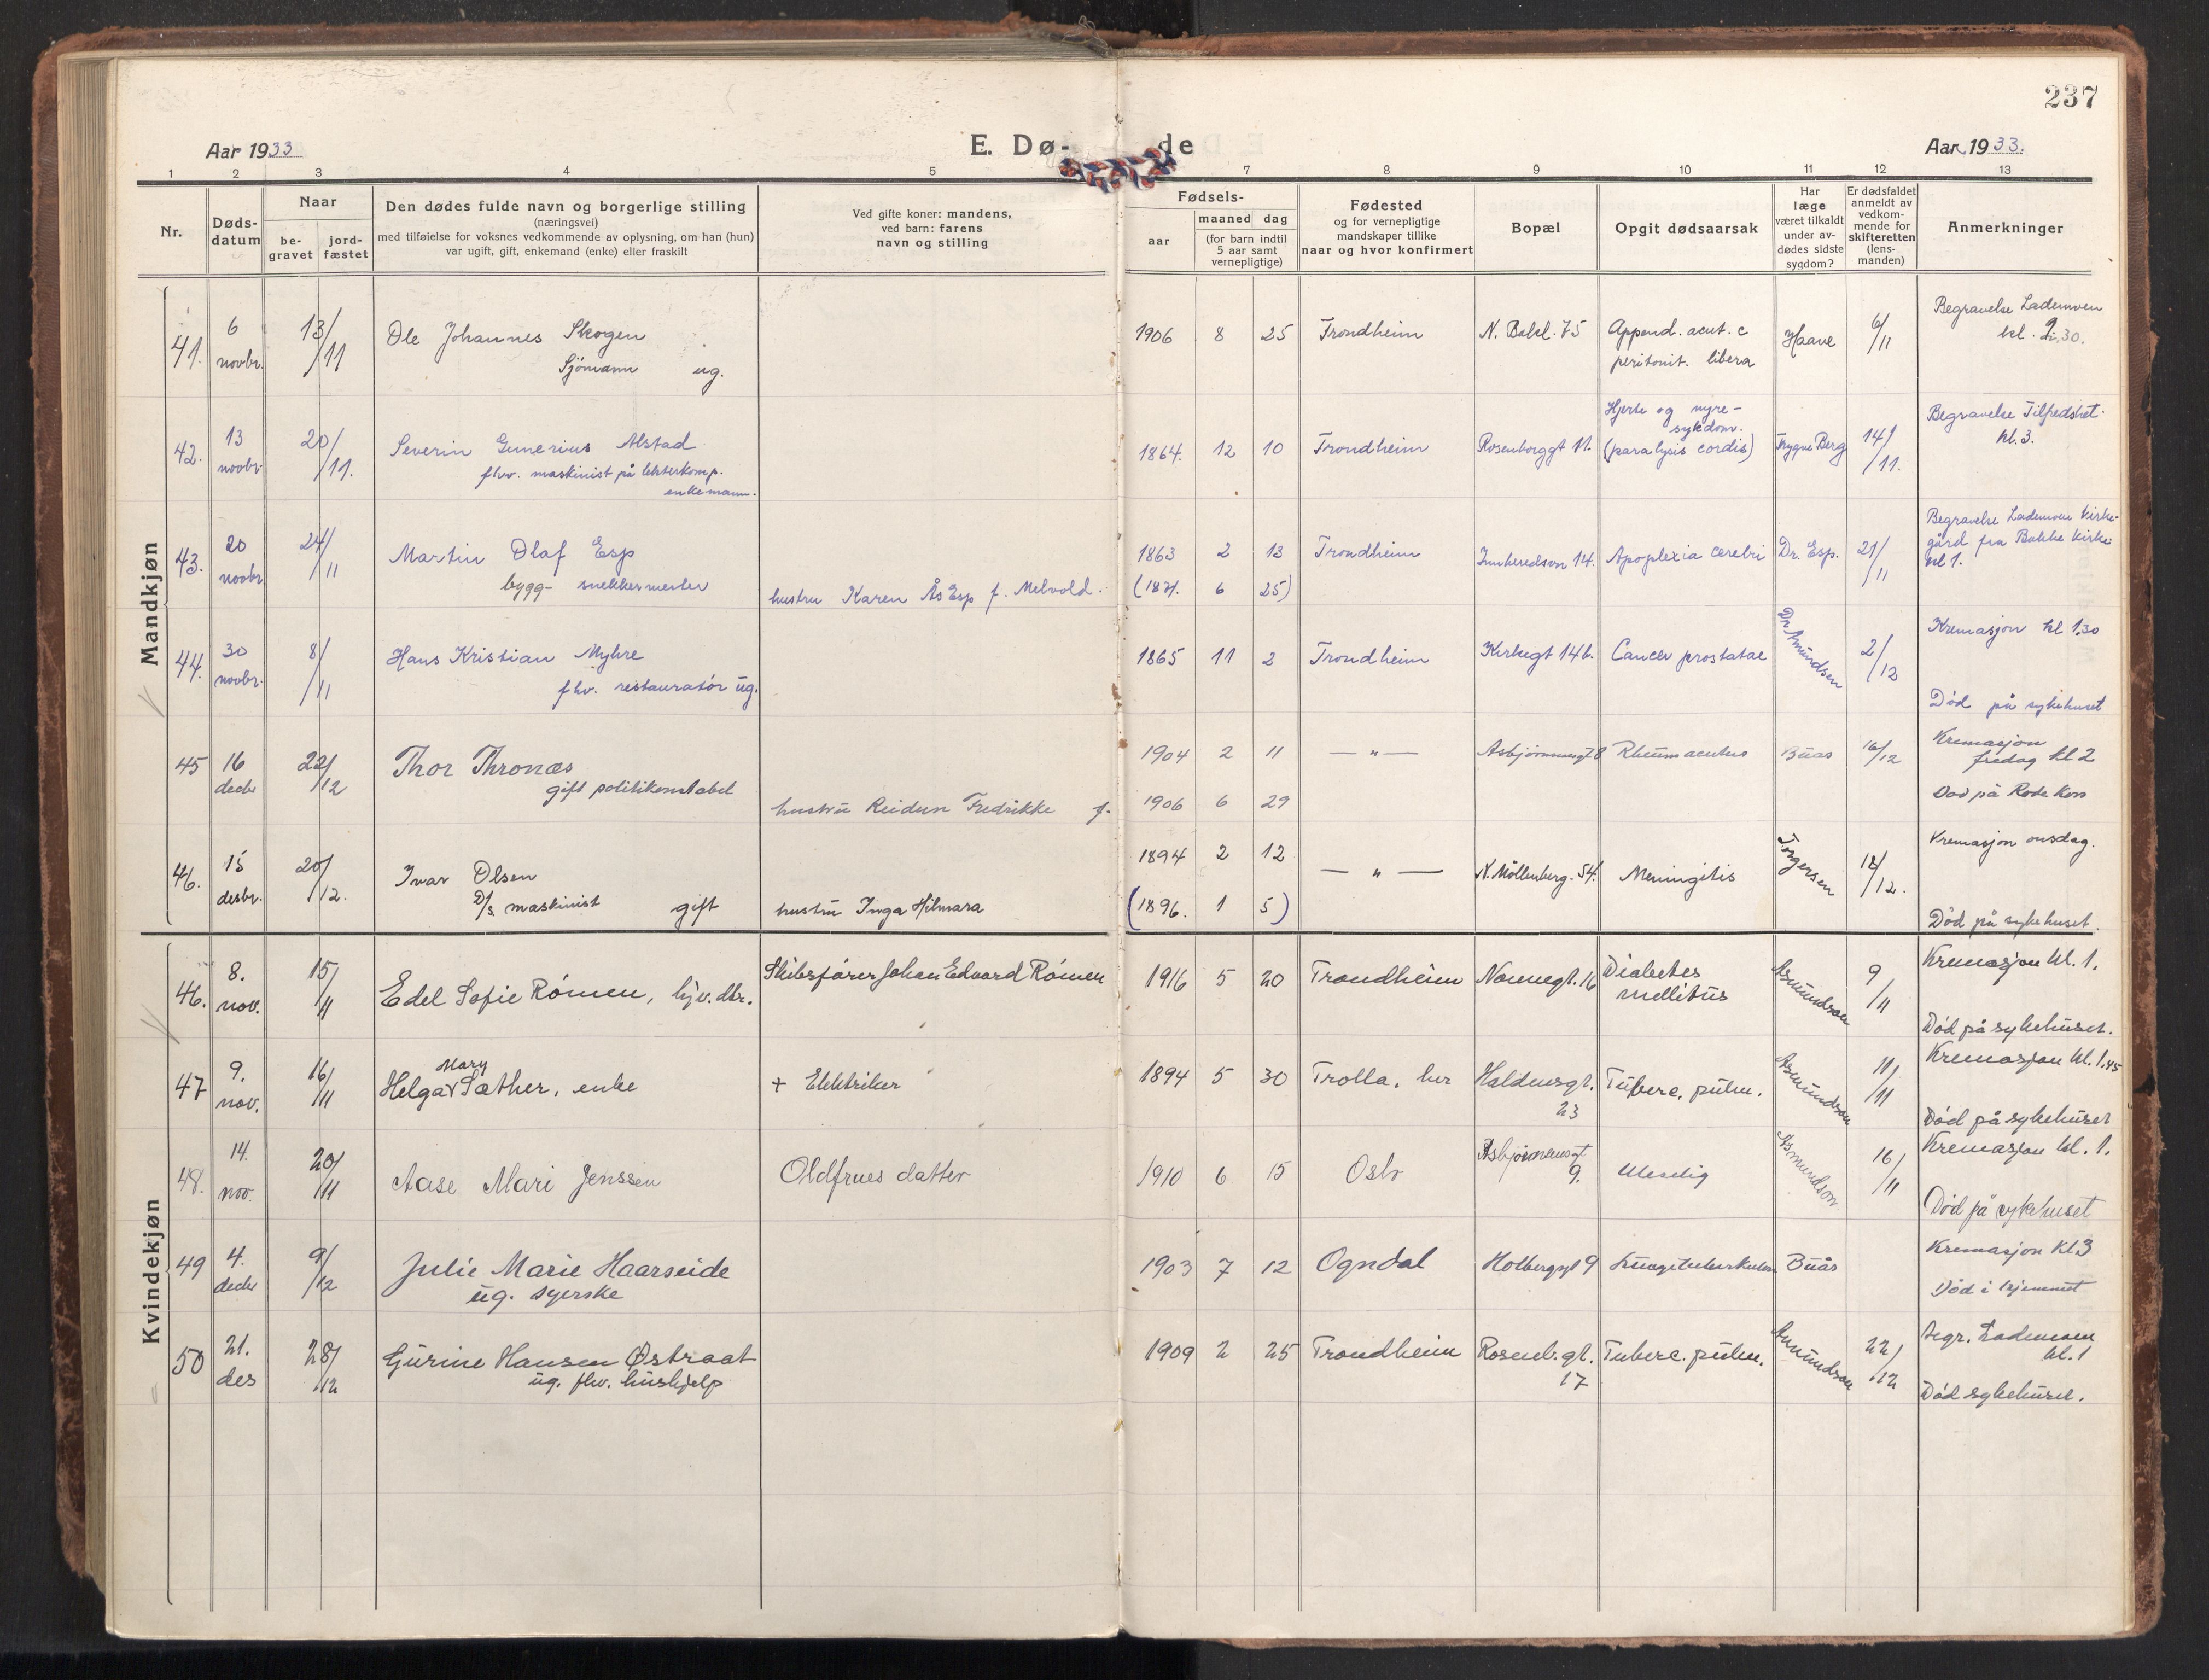 237
Aar 1933
E. Dø-
de
Aar 1933.
1 2 3 4 5 7 8 9 10 11 12 13
Nr.
Døds-
datum
Naar
be-
gravet
jord-
fæstet
Den dødes fulde navn og borgerlige stilling
(næringsvei)
med tilføielse for voksnes vedkommende av oplysning, om han (hun)
var ugift, gift, enkemand (enke) eller fraskilt
Ved gifte koner: mandens,
ved barn: farens
navn og stilling
Fødsels-
aar
maaned
dag
(for barn indtil
5 aar samt
vernepligtige)
Fødested
og for vernepligtige
mandskaper tillike
naar og hvor konfirmert
Bopæl
Opgit dødsaarsak
Har
læge
været tilkaldt
under av-
dødes sidste
sygdom?
Er dødsfaldet
anmeldt av
vedkom-
mende for
skifteretten
(lens-
manden)
Anmerkninger
Mandkjøn
41. 6 novbr. 13/11
Ole Johannes Skogen
Sjömann ug.
1906 8 25 Trondheim N. Bakl. 75
Append. acut. c
peritonit. libera
Haave 6/11
Begravelse Lademoen
kl.
42. 13 novbr. 20/11.
Severin Gunerius Alstad
fhv. maskinist på lekterkomp.
enkemann.
1864. 12 10 Trondheim Rosenborggt 11.
Hjerte og nyre-
sykdom.
(paralysis cordis)
Trygve Berg 14/11.
Begravelse Tilfredshet.
kl. 3.
43. 20 novbr. 24/11
Martin Olaf Esp
bygg- snekkermester
hustru Karen Ås Esp f. Melvold.
1863 2 13 Trondheim Innheredsvn 14. Apoplexia cerebri Dr. Esp. 21/11
(1871. 6 25)
Begravelse Lademoen kirke-
gård fra Bakke kirke
kl 1.
44. 30 novbr. 8/11
Hans Kristian Myhre
fhv. restauratør ug.
1865 11 2 Trondheim Kirkegt 14b. Cancer prostatae
Dr. Amundsen 2/12
Kremasjon kl 1.30
Död på sykehuset
45 16 decbr 22/12
Thor Thronæs
gift politikonstabel
hustru Reidun Fredrikke f.
1904 2 11 — " — Asbjörnsensgt 8 Rheum acutus Buås 16/12
1906 6 29
Kremasjon
fredag kl 2
Död på Röde Kors
46. 15 desbr. 20/12.
Ivar Olsen
D/s maskinist gift
hustru Inga Hilmara
1894 2 12 — " — N. Möllenberg. 54. Meningitis
Torgersen 18/12.
(1896. 1 5)
Kremasjon onsdag.
Död på sykehuset.
Kvindekjøn
46. 8. nov. 15/11
Edel Sofie Römen, hjv. dtr.
Skibsförer Johan Edvard Römen
1916 5 20 Trondheim Nonnegt. 16
Diabetes
mellitus
Asmundson 9/11
Kremasjon kl. 1.
Död på sykehuset.
47 9. nov. 16/11
Mary
Helga Sæther, enke
+ Elektriker
1894 5 30 Trolla, her
Haldensgt.
23
Tuberc. pulm.
Asmundson 11/11
Kremasjon kl. 1.45
Död på sykehuset
48. 14. nov. 20/11
Aase Mari Jenssen
Oldfrues datter
1910 6 15 Oslo
Asbjörnsensgt
9.
Asmundson. 16/11
Kremasjon kl. 1.
Död på sykehuset
49 4. decbr 9/12
Julie Marie Haarseide
ug. syerske
1903 7 12 Ogndal Holbergsgt 9 Lungetuberkulose Buås
Kremasjon kl 3
Död i hjemmet
50 21. des 28/12
Gurine Hansen Østraat
ug. fhv. hushjelp
1909 2 25 Trondheim
Rosenb.gt.
17
Tuberc. pulm.
Asmundson 22/12
Begr. Lademoen
kl. 1
Död sykehuset.